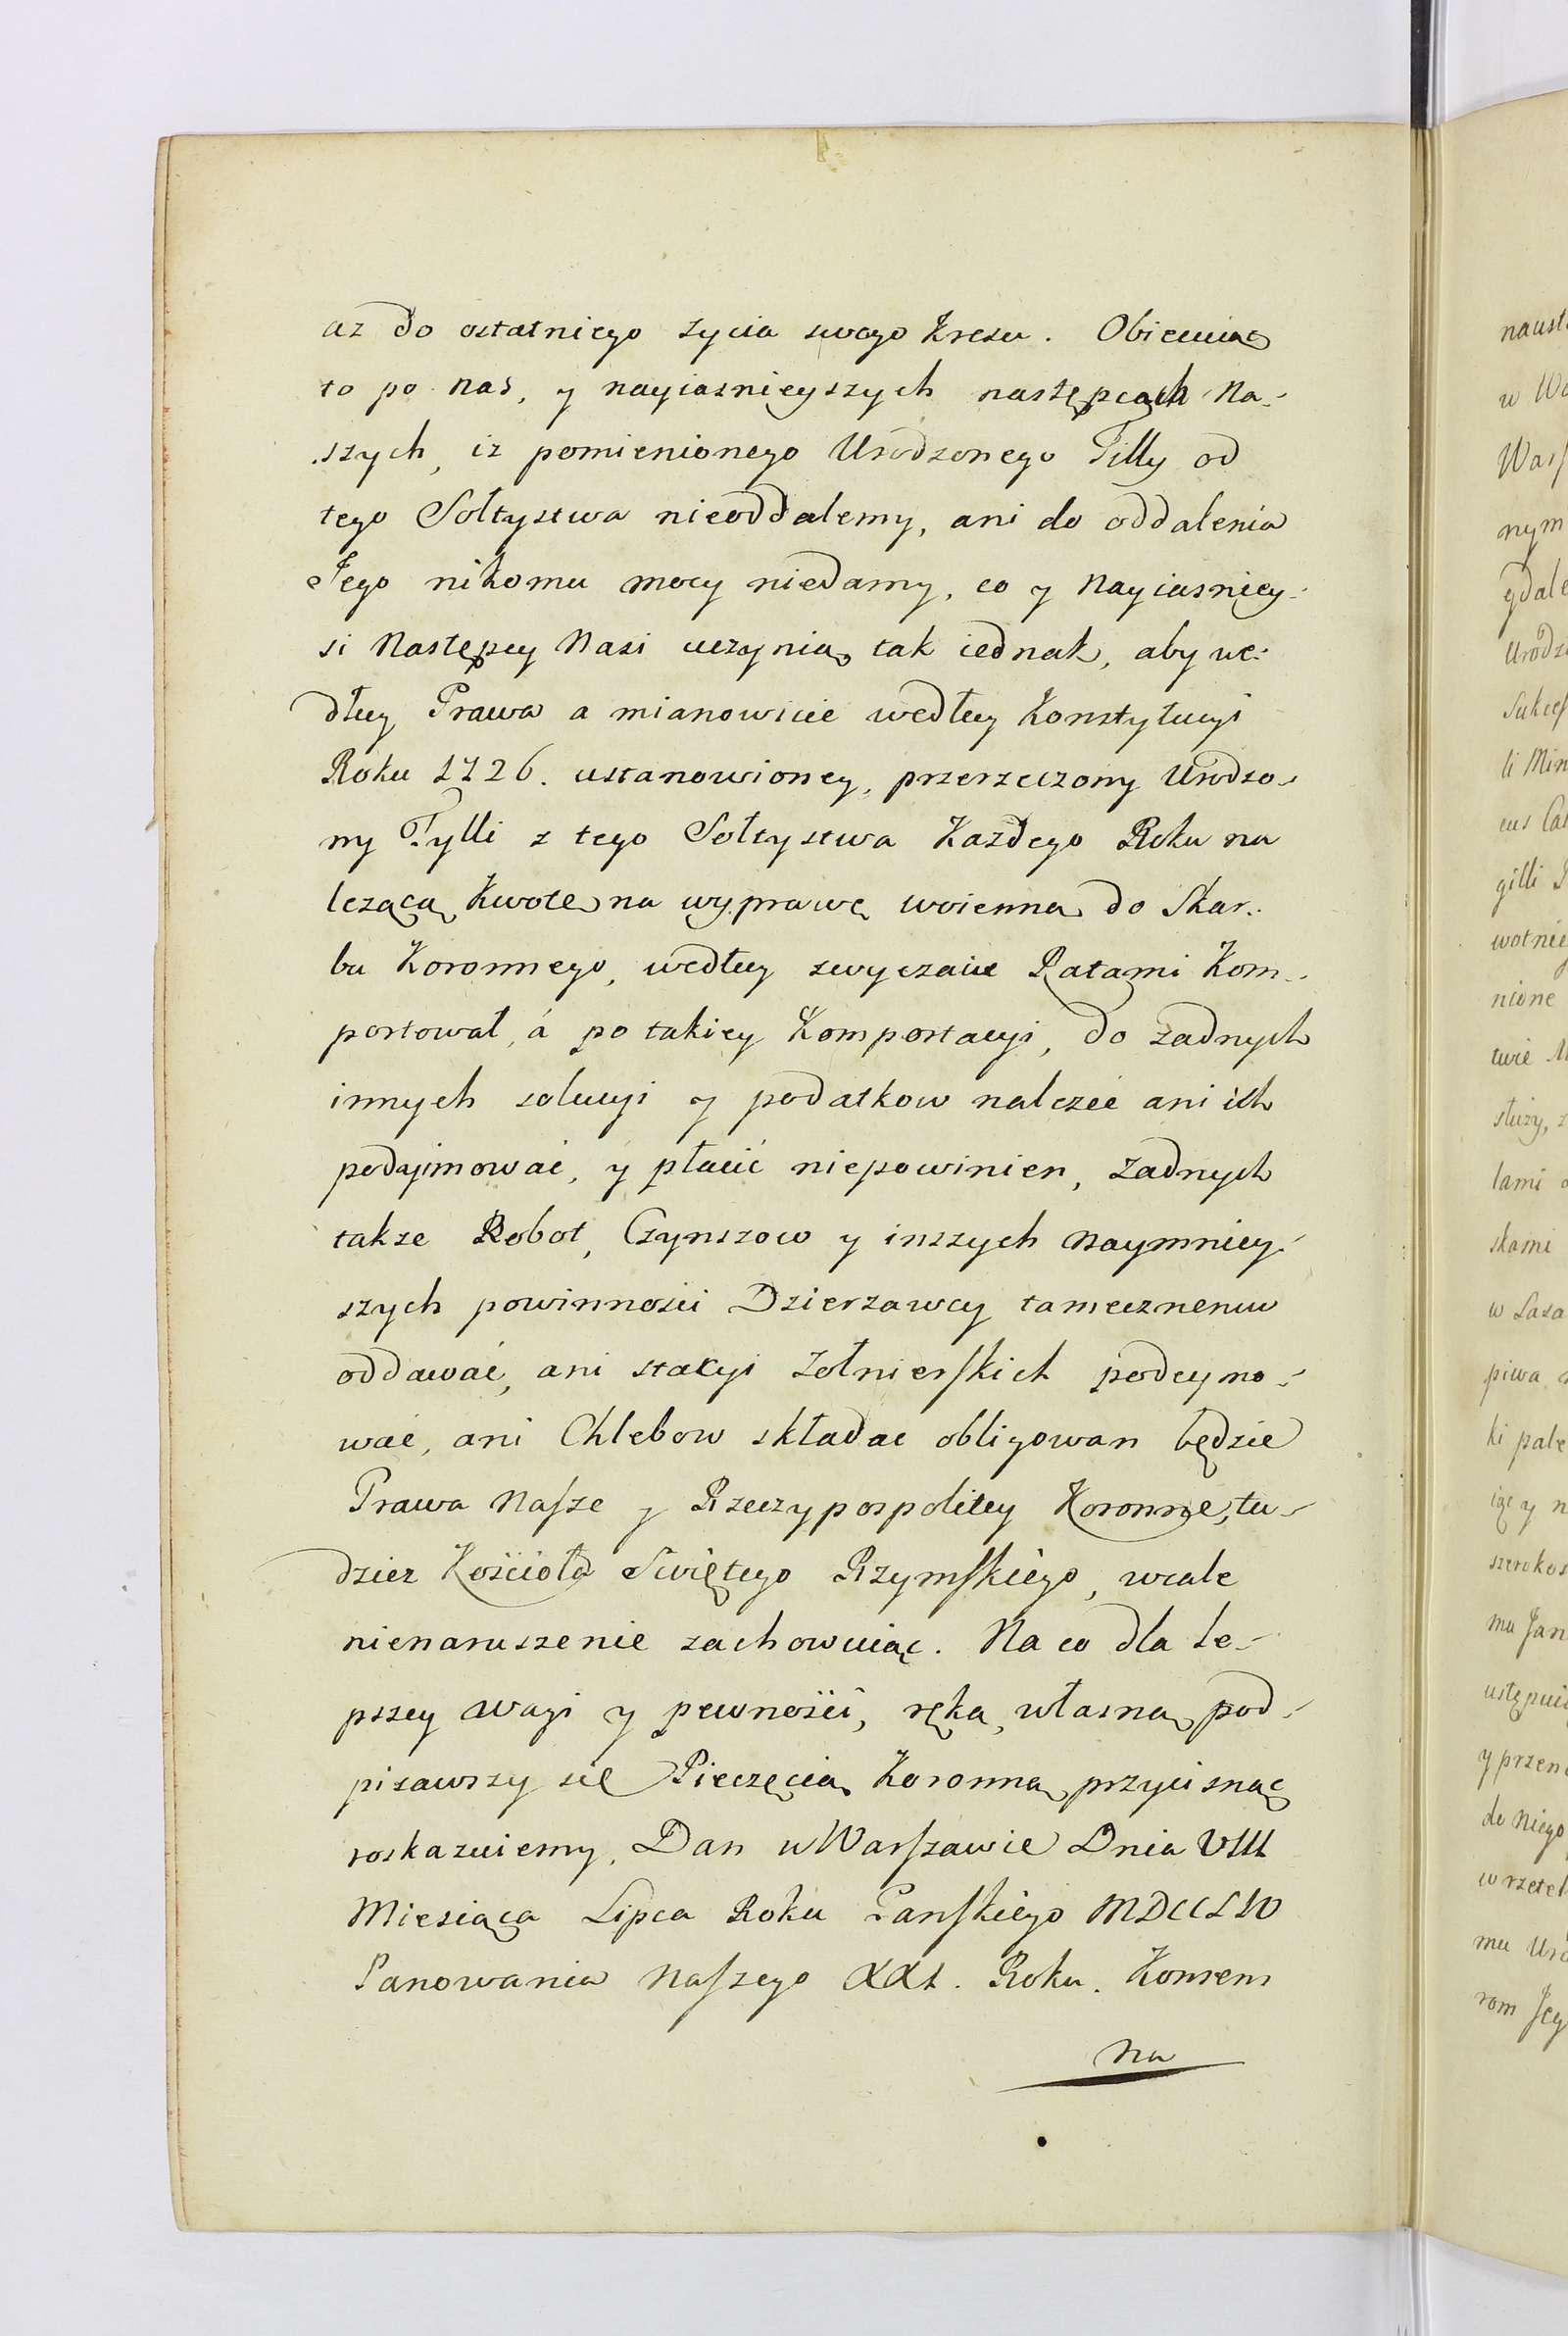 az do ostatniego zycia swego Kresu. Obiecuiąc
to po nas, y nayiasnieyszych następcach Na-
szych, iz pomienionego Urodzonego Tilly od
tego Sołtystwa nieoddalemy, ani do oddalenia
Jego nikomu mocy niedamy, co y Nayiasniey-
si Następcy Nasi uczynią, tak iednak, aby we-
dług Prawa a mianowicie według Konstytucyi
Roku 1726. ustanowioney, przerzeczony Urodzo-
ny Tylli z tego Sołtystwa Kazdego Roku na
lezącą Kwotę na wyprawę woienną do Skar-
bu Koronnego, według zwyczaiu Ratami Kom-
portował, á po takiey Komportacyi, do zadnych
innych solucyi y podatkow nalezeć ani ich
podyimować, y płacić niepowinien, zadnych
takze Robot, Czynszow y inszych naymniey-
szych powinnosci Dzierzawcy tamecznemu
oddawać, ani stacyi Zołnierskich podeymo-
wać, ani Chlebow składac obligowan będzie
Prawa Nasze y Rzeczypospolitey Koronne, tu-
dziez Kościoła Swiętego Rzymskiego, wcale
nienaruszenie zachowuiąc. Na co dla le-
pszey wagi y pewności, ręką własną pod-
pisawszy się Pieczęcią Koronną przycisnąc
roskazuiemy. Dan w Warszawie Dnia VIII
Miesiąca Lipca Roku Panskiego MDCCLIV
Panowania Naszego XXI. Roku. Konsens
na